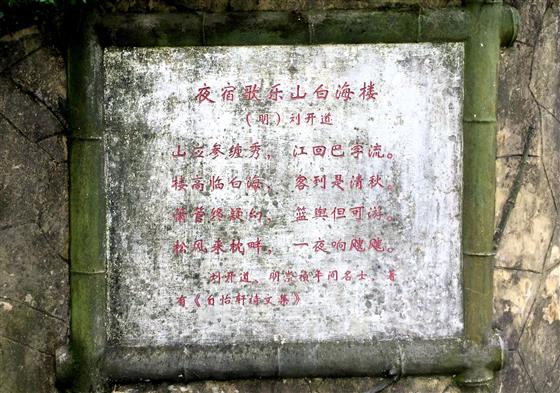 夜宿歌乐山白海楼
（明）刘开道
山立参缠秀， 江回巴字流。
楼高临白海， 客到是清秋。
菅终疑幻， 篮舆但可游。
松风来枕畔， 一夜响飕飕。
刘开道，明崇祯年间名士，著
有《自怡轩诗文集》